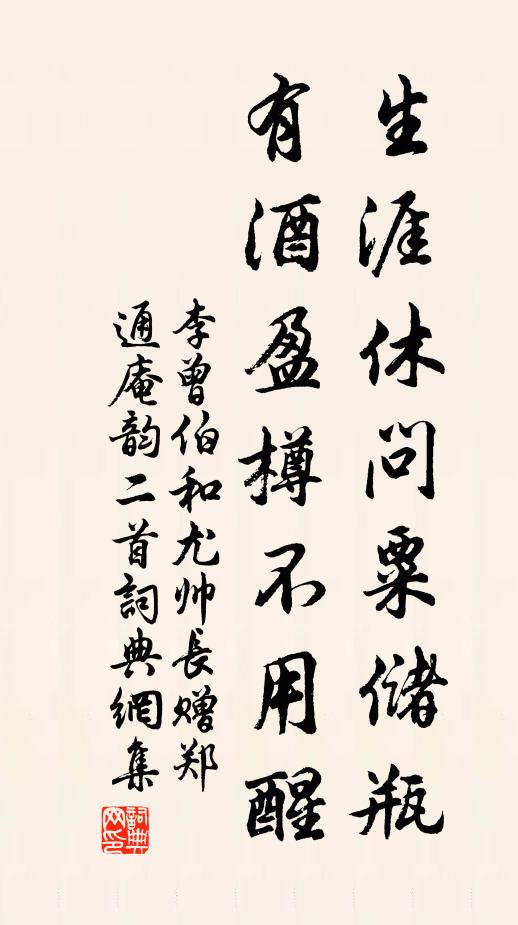 生涯休问粟储瓶
有酒盈樽不用醒
李曾伯和尤帅长赠郑
通庵韵二首词典网集